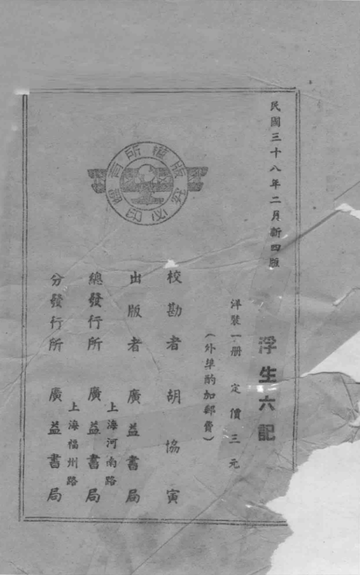 民國三十八年二月新四版
浮生六記
洋裝一册 定價三元
(外埠酌加郵費)
校勘者 胡協寅
出版者 廣益書局
上海河南路
總發行所 廣益書局
上海福州路
分發行所 廣益書局
版權所有
翻印必究